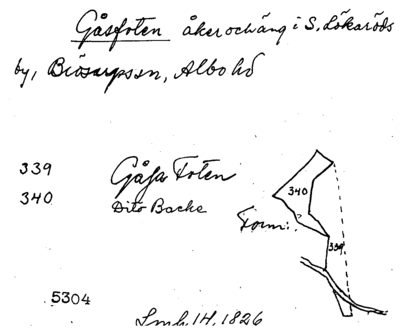 Gåsfoten åker och äng i S. Lökaröds
by, Brösarpssn, Albo hd
339 Gåsa Foten
340 Dito Backe
340
Form:?
339
5304
Lmh. 14, 1826